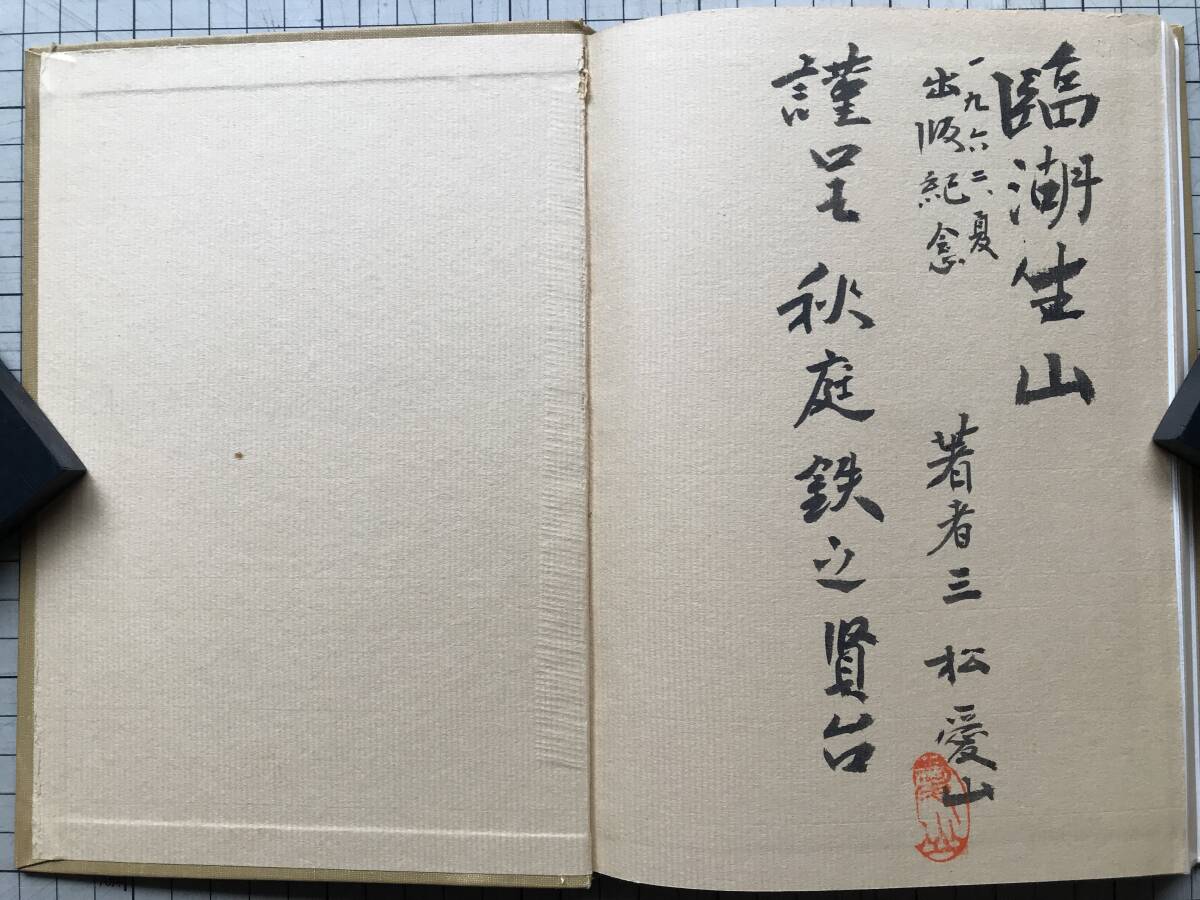 臨潮生山
一九六二、夏
出版紀念
著者三松愛山
謹呈 秋庭鉄之賢台
愛山